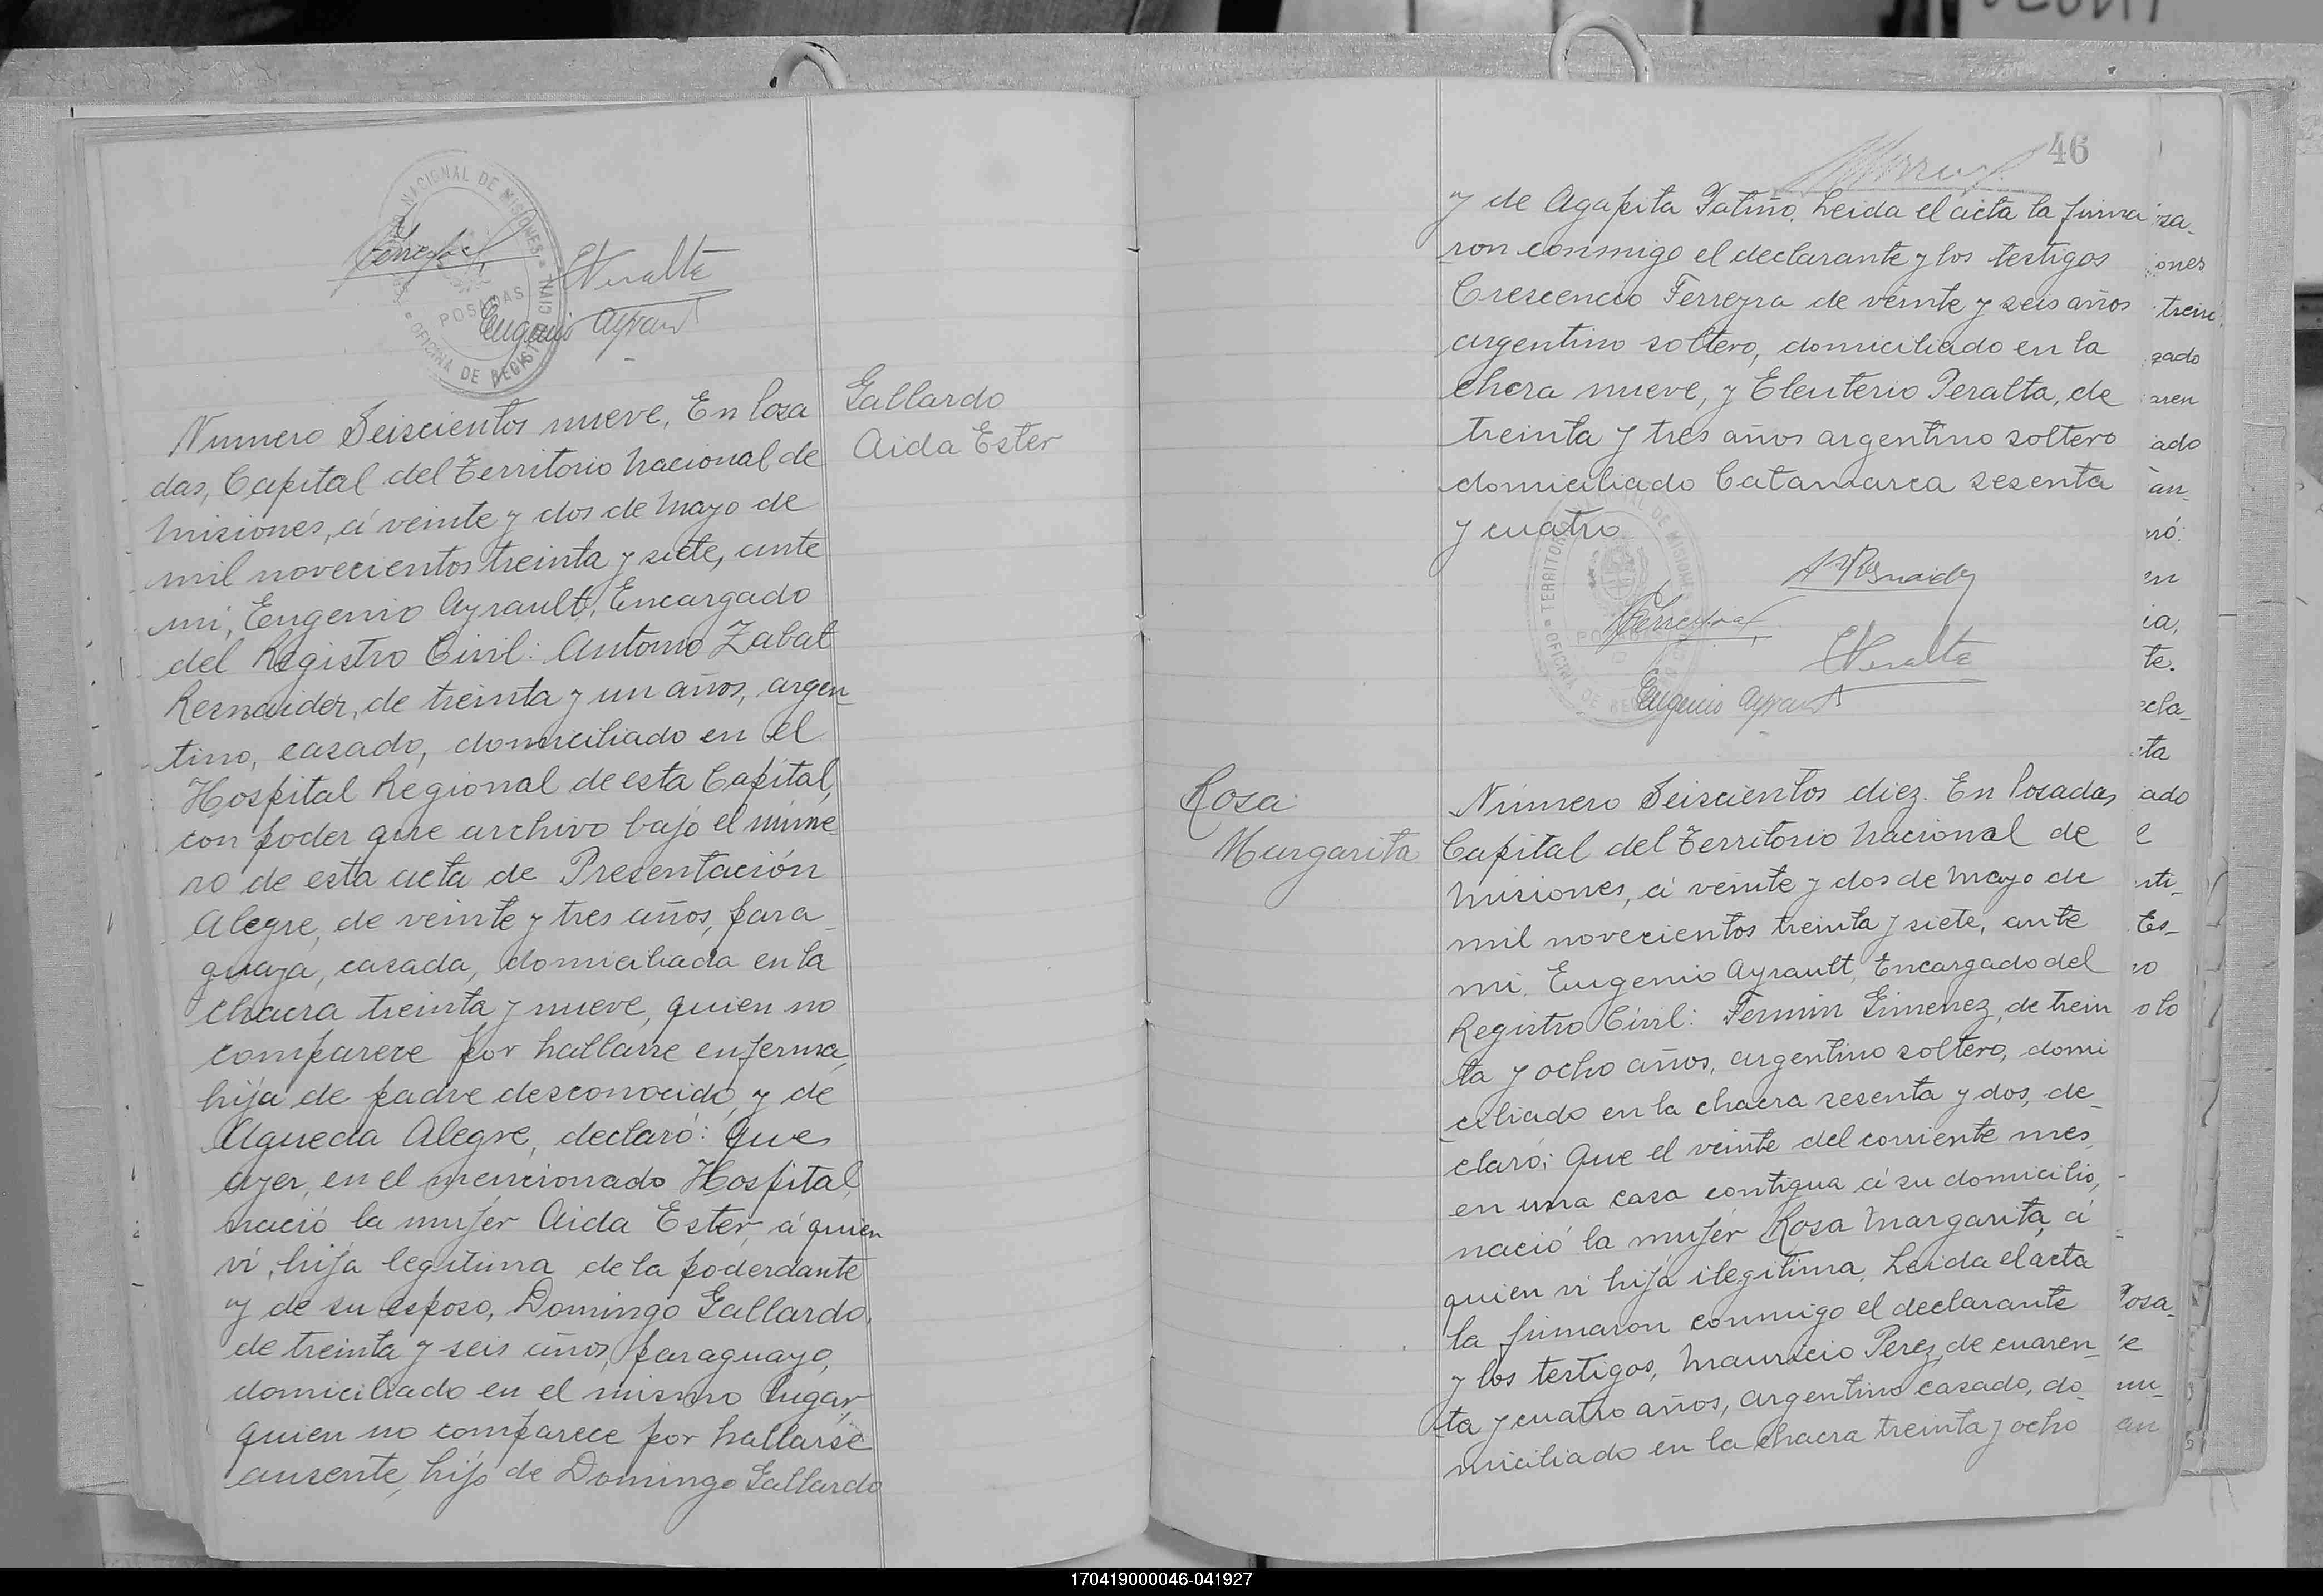 46
TERRITORIO NACIONAL DE MISIONES
POSADAS
OFICINA DE REGISTRO CIVIL
Ferreyra
EPeralta
Eugenio Ayrault
Gallardo
Aida Ester
Numero Seiscientos nueve. En Posa
das, Capital del Territorio Nacional de
Misiones, á veinte y dos de Mayo de
mil novecientos treinta y siete, ante
mi, Eugenio Ayrault, Encargado
del Registro Civil: Antonio Zabat
Resnaider, de treinta y un años, argen
tino, casado, domiciliado en el
Hospital Regional de esta Capital,
con poder que archivo bajo el núme
ro de esta acta de Presentación
Alegre, de veinte y tres años, para
guaya, casada, domiciliada en la
chacra treinta y nueve, quien no
comparece por hallarse enferma,
hija de padre desconocido, y de
Agueda Alegre, declaró: Que
ayer, en el mencionado Hospital,
nació la mujer Aida Ester, á quien
ví, hija legitima de la poderdante
y de su esposo, Domingo Gallardo,
de treinta y seis años, paraguayo,
domiciliado en el mismo lugar,
quien no comparece por hallarse
ausente, hijo de Domingo Gallardo
y de Agapita Fatiño. Leida el acta la firma
ron conmigo el declarante y los testigos
Crescencio Ferreyra de veinte y seis años
argentino soltero, domiciliado en la
chcra nueve, y Eleuterio Peralta, de
treinta y tres años argentino soltero
domiciliado Catamarca sesenta
y cuatro
TERRITORIO NACIONAL DE MISIONES
POSADAS
OFICINA DE REGISTRO CIVIL
AZResnaider
Ferreyra
EPeralta
Eugenio Ayrault
Rosa
Margarita
Número Seiscientos diez. En Posadas,
Capital del Territorio Nacional de
Misiones, á veinte y dos de Mayo de
mil novecientos treinta y siete, ante
mi, Eugenio Ayrault, Encargado del
Registro Civil: Fermin Gimenez, de trein
ta y ocho años, argentino soltero, domi
ciliado en la chacra sesenta y dos, de-
claró: Que el veinte del corriente mes
en una casa contigua á su domicilio,
nació la mujer Rosa Margarita, á
quien ví hija ilegitima. Leida el acta
la firmaron conmigo el declarante
y los testigos, Mauricio Perez, de cuaren-
ta y cuatro años, argentino casado, do
miciliado en la chacra treinta y ocho
170419000046-041927